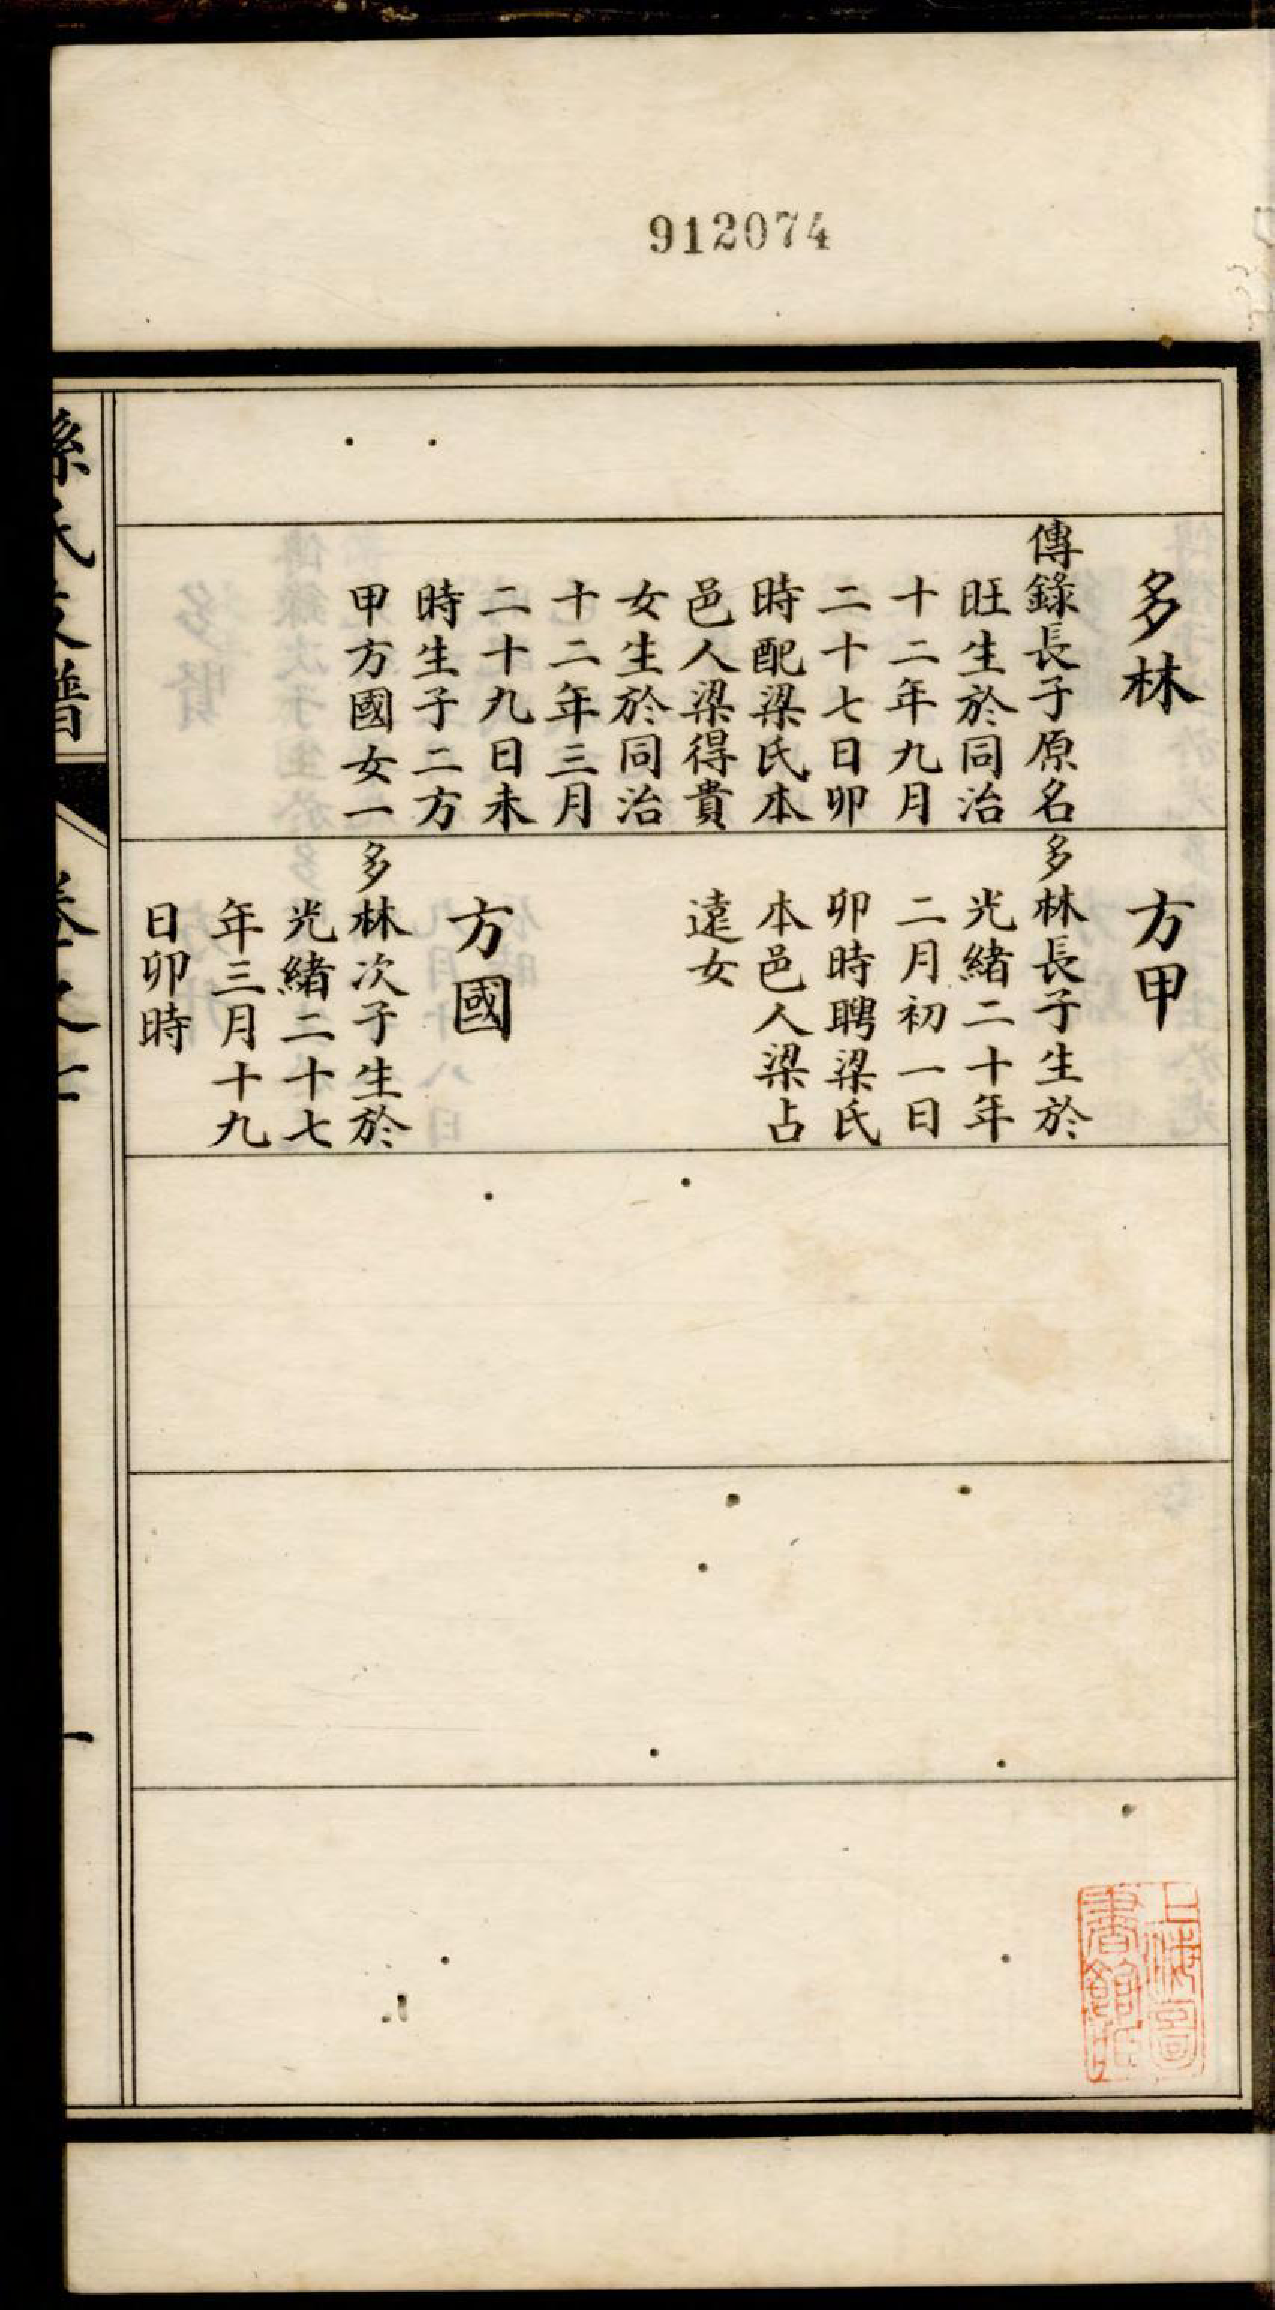 912074
多林
傳錄長子原名
旺生於同治
十二年九月
二十七日卯
時配梁氏本
邑人梁得貴
女生於同治
十二年三月
二十九日未
時生子二方
甲方國女一
方甲
多林長子生於
光緒二十年
二月初一日
卯時聘梁氏
本邑人梁占
遠女
方國
多林次子生於
光緒二十七
年三月十九
日卯時
孫氏支譜
一
上海圖
書館藏